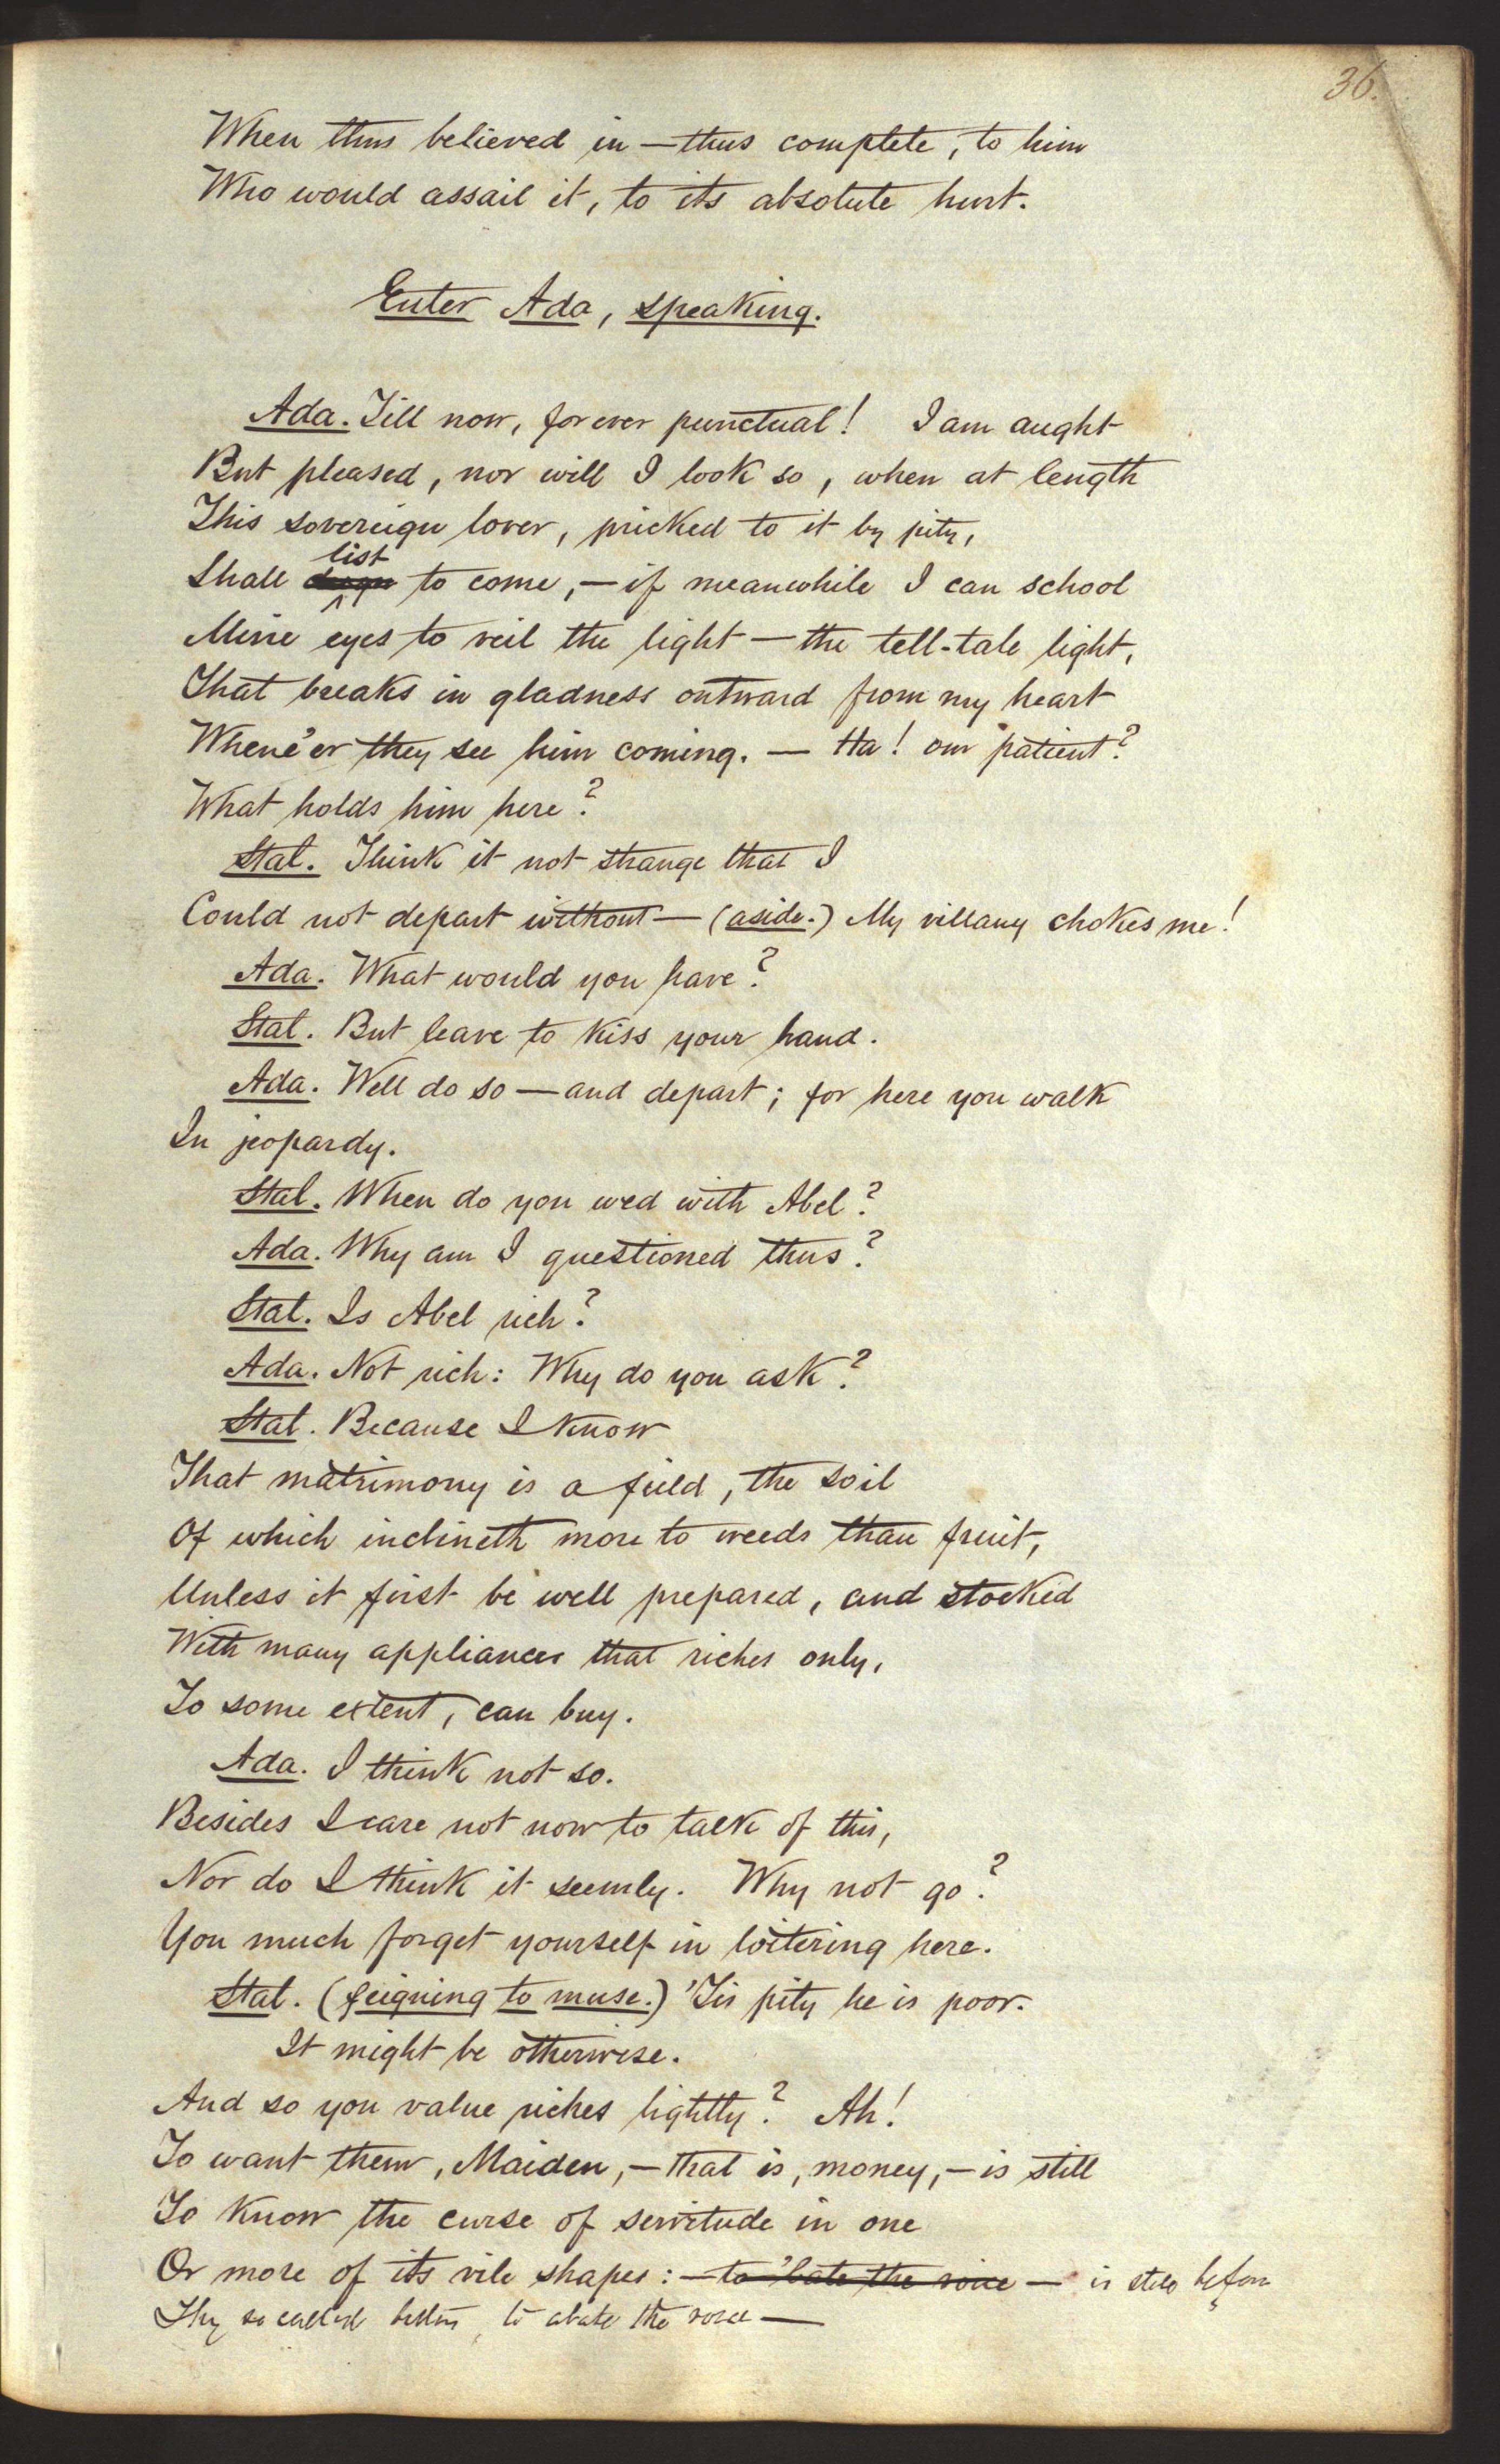 36.
When thus believed in — thus complete, to him
Who would assail it, to its absolute hurt.
Enter Ada, speaking.
Ada. Till now, forever punctual! I am aught
But pleased, nor will I look so, when at length
This sovereign lover, pricked to it by pity,
list
Shall to come, — if meanwhile I can school
Mine eyes to veil the light — the tell-tale light,
That breaks in gladness outward from my heart
Whene'er they see him coming. — Ha! our patient?
What holds him here?
Stal. Think it not strange that I
Could not depart without — (aside.) My villany chokes me!
Ada. What would you have?
Stal. But leave to kiss your hand.
Ada. Well do so — and depart; for here you walk
In jeopardy.
Stal. When do you wed with Abel?
Ada. Why am I questioned thus?
Stal. Is Abel rich?
Ada. Not rich: Why do you ask?
Stal. Because I know
That matrimony is a field, the soil
Of which inclineth more to weeds than fruit,
Unless it first be well prepared, and stocked
With many appliances that riches only,
To some extent, can buy.
Ada. I think not so.
Besides I care not now to talk of this,
Nor do I think it seemly. Why not go?
You much forget yourself in loitering here.
Stal. (feigning to muse.) 'Tis pity he is poor.
It might be otherwise.
And so you value riches lightly? Ah!
To want them, Maiden, — that is, money, — is still
To know the curse of servitude in one
Or more of its vile shapes: — to 'bate the voice — is still before
Thy so called betters, to abate the voice —